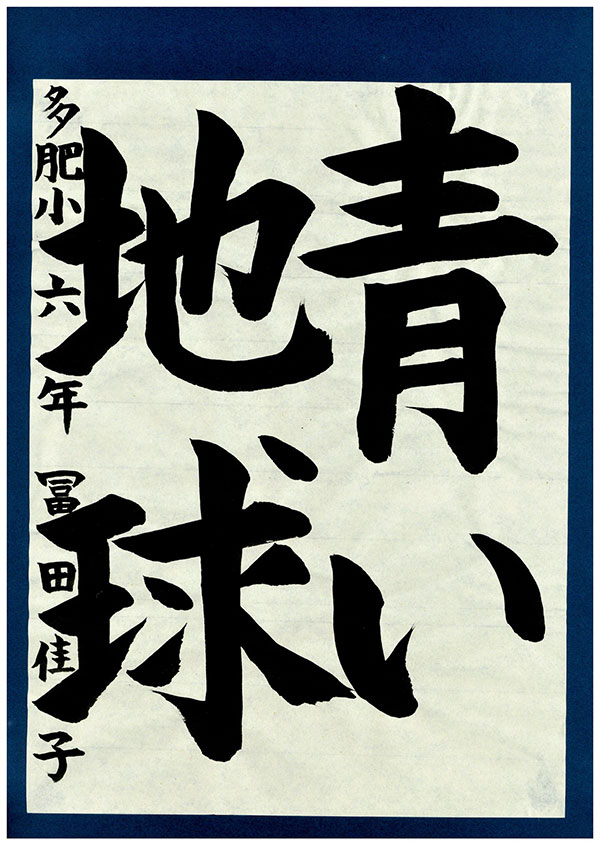 青い
地球
多肥小六年 冨田佳子